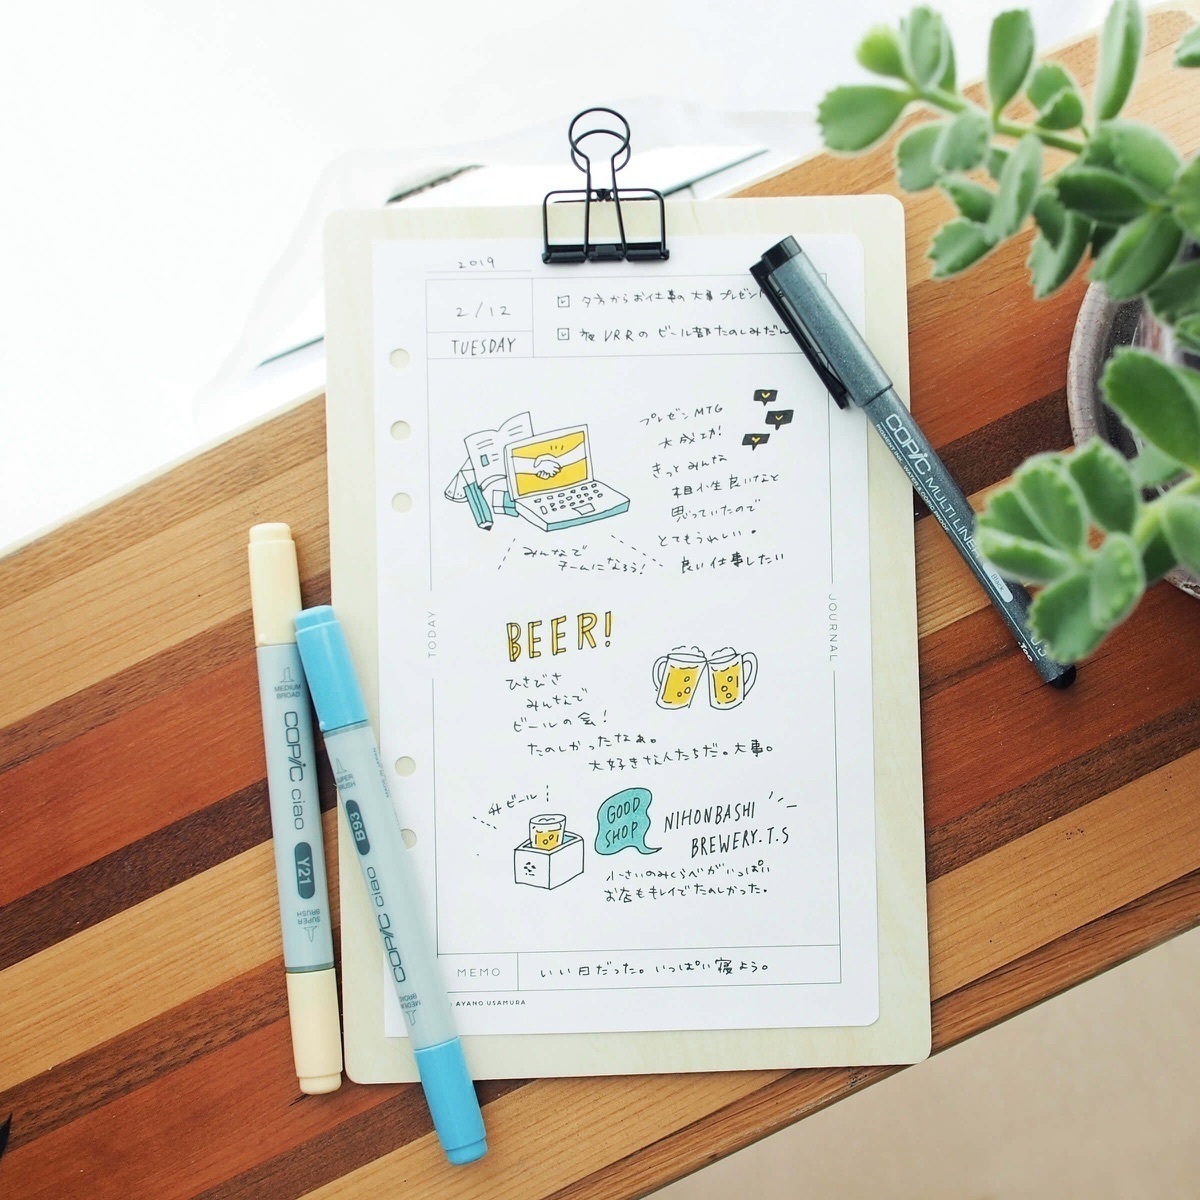 2019
2/12
TUESDAY
夕方からお仕事の大事プレゼン
夜VRRのビール部たのしみだん
プレゼンMTG
大成功!
きっとみんな
相性良いなと
思っていたので
とてもうれしい。
良い仕事したい
みんなで
チームになろう!
TODAY
JOURNAL
BEER!
ひさびさ
みんなで
ビールの会!
たのしかったなぁ。
大好きな人たちだ。大事。
#ビール
GOOD
SHOP
NIHONBASHI
BREWERY.T.S
小さいのみくらべがいっぱい
お店もキレイでたのしかった。
MEMO
いい日だった。いっぱい寝よう。
AYANO USAMURA
COPIC MULTILINER
PIGMENT INK WATER & COPIC PROOF
Black
0.3
Too
MEDIUM
BROAD
COPIC ciao
Y21
SUPER
BRUSH
SUPER
BRUSH
B93
COPIC ciao
MEDIUM
BROAD